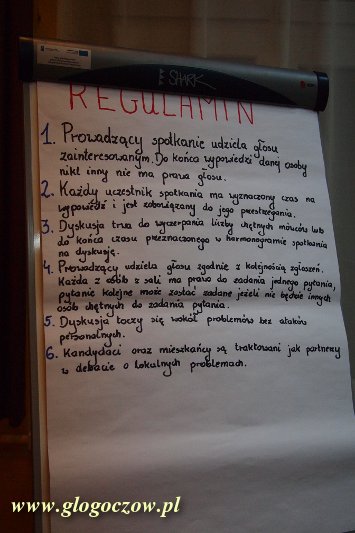 SHARK
REGULAMIN
1. Prowadzący spotkanie udziela głosu
zainteresowanym. Do końca wypowiedzi danej osoby
nikt inny nie ma prawa głosu.
2. Każdy uczestnik spotkania ma wyznaczony czas na
wypowiedź i jest zobowiązany do jego przestrzegania.
3. Dyskusja trwa do wyczerpania liczby chętnych mówców lub
do końca czasu przeznaczonego w harmonogramie spotkania
na dyskusję.
4. Prowadzący udziela głosu zgodnie z kolejnością zgłoszeń.
Każda z osób z sali ma prawo do zadania jednego pytania,
pytanie kolejne może zostać zadane jeżeli nie będzie innych
osób chętnych do zadania pytania.
5. Dyskusja toczy się wokół problemów bez ataków
personalnych.
6. Kandydaci oraz mieszkańcy są traktowani jak partnerzy
w debacie o lokalnych problemach.
www.glogoczow.pl